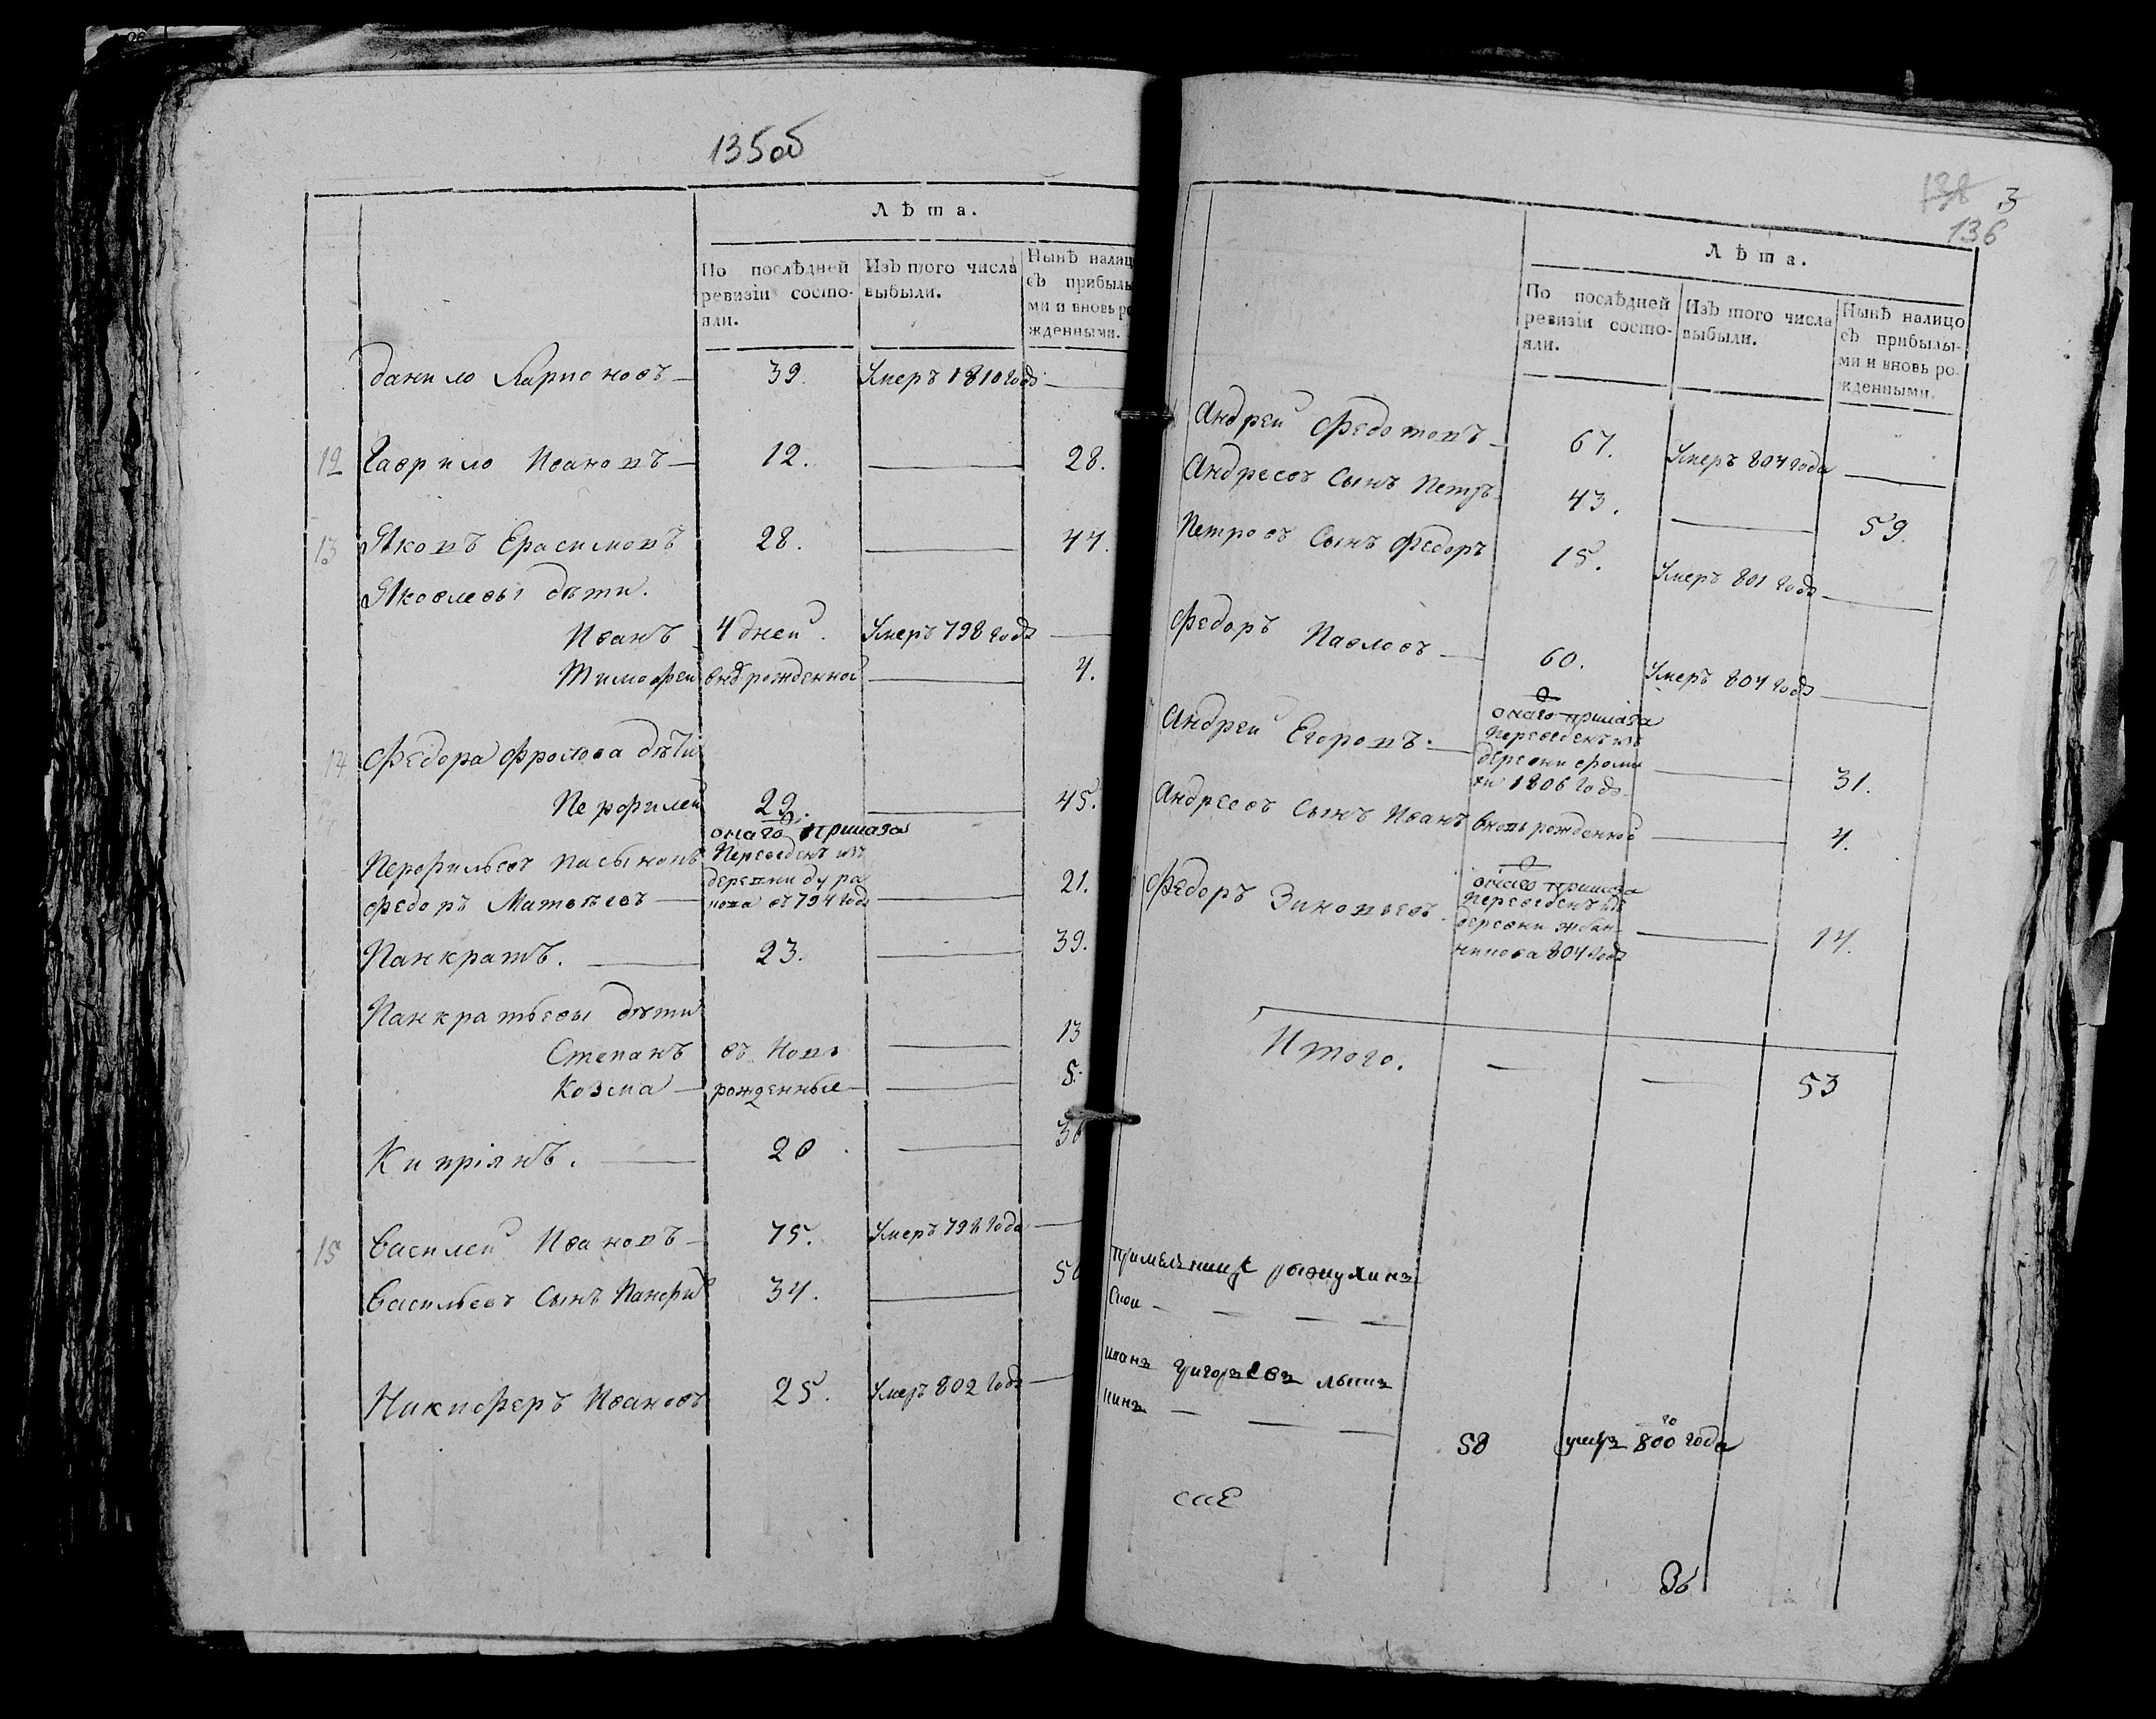 135об
Лѣта.
По послѣдней
ревизіи состо-
яли.
Изъ того числа
выбыли.
Нынѣ налиц
съ прибылы
ми и вновь ро
жденными.
Данило Ларионовъ — 39. Умеръ 1810 года —
12 Гаврило Ивановъ — 12. — 28.
13 Яковъ Ерасимовъ 28. — 44.
Яковлевы дѣти.
Иванъ 4 дней. Умеръ 798 года —
Тимофей рожденной — 4.
14 Федора Фролова дѣти
Перфилей 29. — 45.
Перфильевъ пасынокъ
Федоръ Матвѣевъ —
онаго приказа
Переведенъ изъ
деревни
въ 794 году — 21.
Панкратъ. — 23. — 39.
Панкратьевы дѣти
Степанъ въ новь — 13
Козма — рожденные — 5.
Кипріянъ. — 20. — 36
15 Василей Ивановъ — 75. Умеръ года —
Васильевъ сынъ Панфил 34. — 50
Никифоръ Ивановъ 25. Умеръ 802 года —
138 3
136
Лѣта.
По послѣдней
ревизіи состо-
яли.
Изъ того числа
выбыли.
Нынѣ налицо
съ прибылы-
ми и вновь ро-
жденными.
Андрей Федотовъ — 67. Умеръ 804 года —
Андреевъ сынъ Петръ 43. — 59.
Петровъ сынъ Федоръ 15. Умеръ 801 года —
Федоръ Павловъ — 60. Умеръ 804 года —
Андрей Егоровъ. —
онаго приказа
Переведенъ изъ
деревни
1806 года — 31.
Андреевъ сынъ Иванъ вновь рожденной — 4.
Федоръ Зиновьевъ.
онаго приказа
Переведенъ изъ
деревни
804 года — 14.
Итого. — — 53
Иванъ Григорьевъ
58 умеръ 800го года